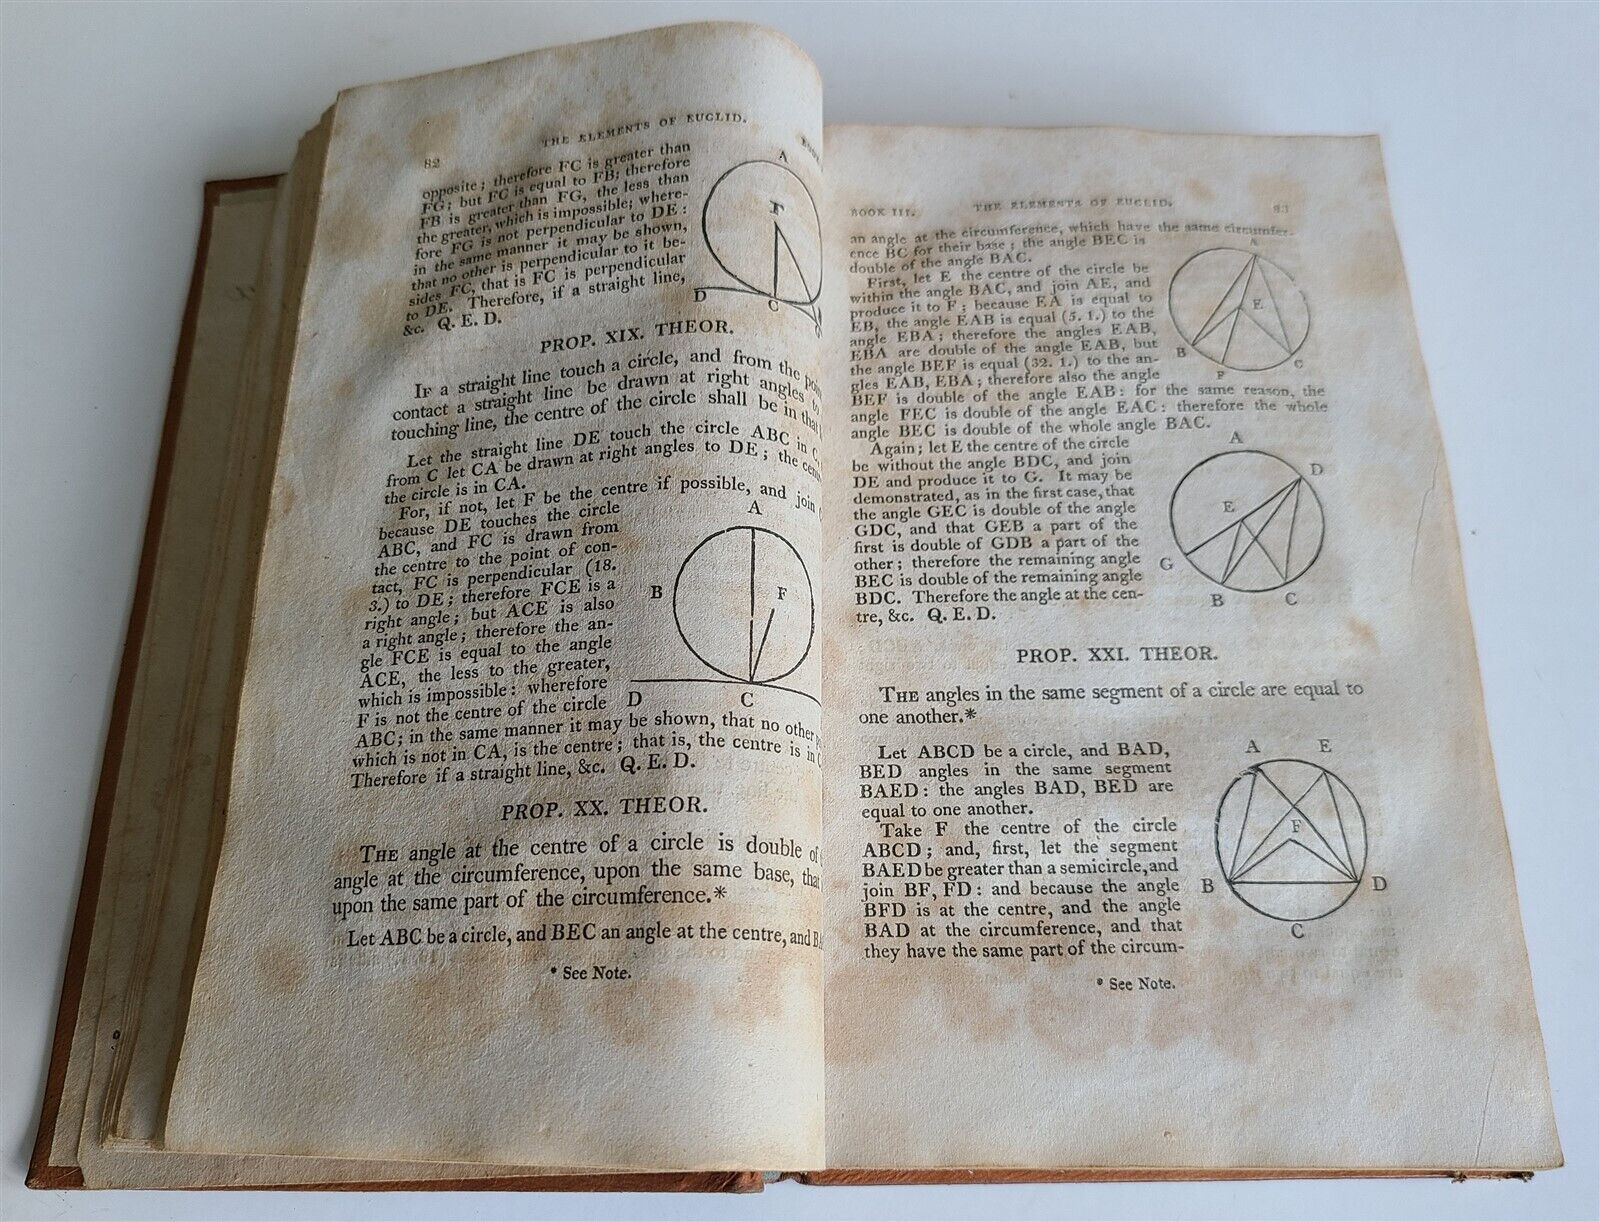 82 THE ELEMENTS OF EUCLID.
opposite; therefore FC is greater than
FG; but FC is equal to FB; therefore
FB is greater than FG, the less than
the greater, which is impossible; where-
fore FG is not perpendicular to DE:
in the same manner it may be shown,
that no other is perpendicular to it be-
sides FC, that is FC is perpendicular
to DE. Therefore, if a straight line,
&c. Q. E. D.
A
F
D
C
PROP. XIX. THEOR.
IF a straight line touch a circle, and from the
contact a straight line be drawn at right angles to
touching line, the centre of the circle shall be in that
Let the straight line DE touch the circle ABC in C,
from C let CA be drawn at right angles to DE; the
the circle is in CA.
For, if not, let F be the centre if possible, and join
because DE touches the circle
ABC, and FC is drawn from
the centre to the point of con-
tact, FC is perpendicular (18.
3.) to DE; therefore FCE is a
right angle; but ACE is also
a right angle; therefore the an-
gle FCE is equal to the angle
ACE, the less to the greater,
which is impossible: wherefore
F is not the centre of the circle
ABC; in the same manner it may be shown, that no other
which is not in CA, is the centre; that is, the centre is in
Therefore if a straight line, &c. Q. E. D.
A
B
F
D
C
PROP. XX. THEOR.
THE angle at the centre of a circle is double of
angle at the circumference, upon the same base, that
upon the same part of the circumference.*
Let ABC be a circle, and BEC an angle at the centre, and
* See Note.
BOOK III. THE ELEMENTS OF EUCLID. 83
an angle at the circumference, which have the same circumfer-
ence BC for their base; the angle BEC is
double of the angle BAC.
First, let E the centre of the circle be
within the angle BAC, and join AE, and
produce it to F; because EA is equal to
EB, the angle EAB is equal (5. 1.) to the
angle EBA; therefore the angles EAB,
EBA are double of the angle EAB, but
the angle BEF is equal (32. 1.) to the an-
gles EAB, EBA; therefore also the angle
BEF is double of the angle EAB: for the same reason, the
angle FEC is double of the angle EAC: therefore the whole
angle BEC is double of the whole angle BAC.
A
E
B
F
C
Again; let E the centre of the circle
be without the angle BDC, and join
DE and produce it to G. It may be
demonstrated, as in the first case, that
the angle GEC is double of the angle
GDC, and that GEB a part of the
first is double of GDB a part of the
other; therefore the remaining angle
BEC is double of the remaining angle
BDC. Therefore the angle at the cen-
tre, &c. Q. E. D.
A
D
E
G
B
C
PROP. XXI. THEOR.
THE angles in the same segment of a circle are equal to
one another.*
Let ABCD be a circle, and BAD,
BED angles in the same segment
BAED: the angles BAD, BED are
equal to one another.
Take F the centre of the circle
ABCD; and, first, let the segment
BAED be greater than a semicircle, and
join BF, FD: and because the angle
BFD is at the centre, and the angle
BAD at the circumference, and that
they have the same part of the circum-
A E
F
B D
C
* See Note.